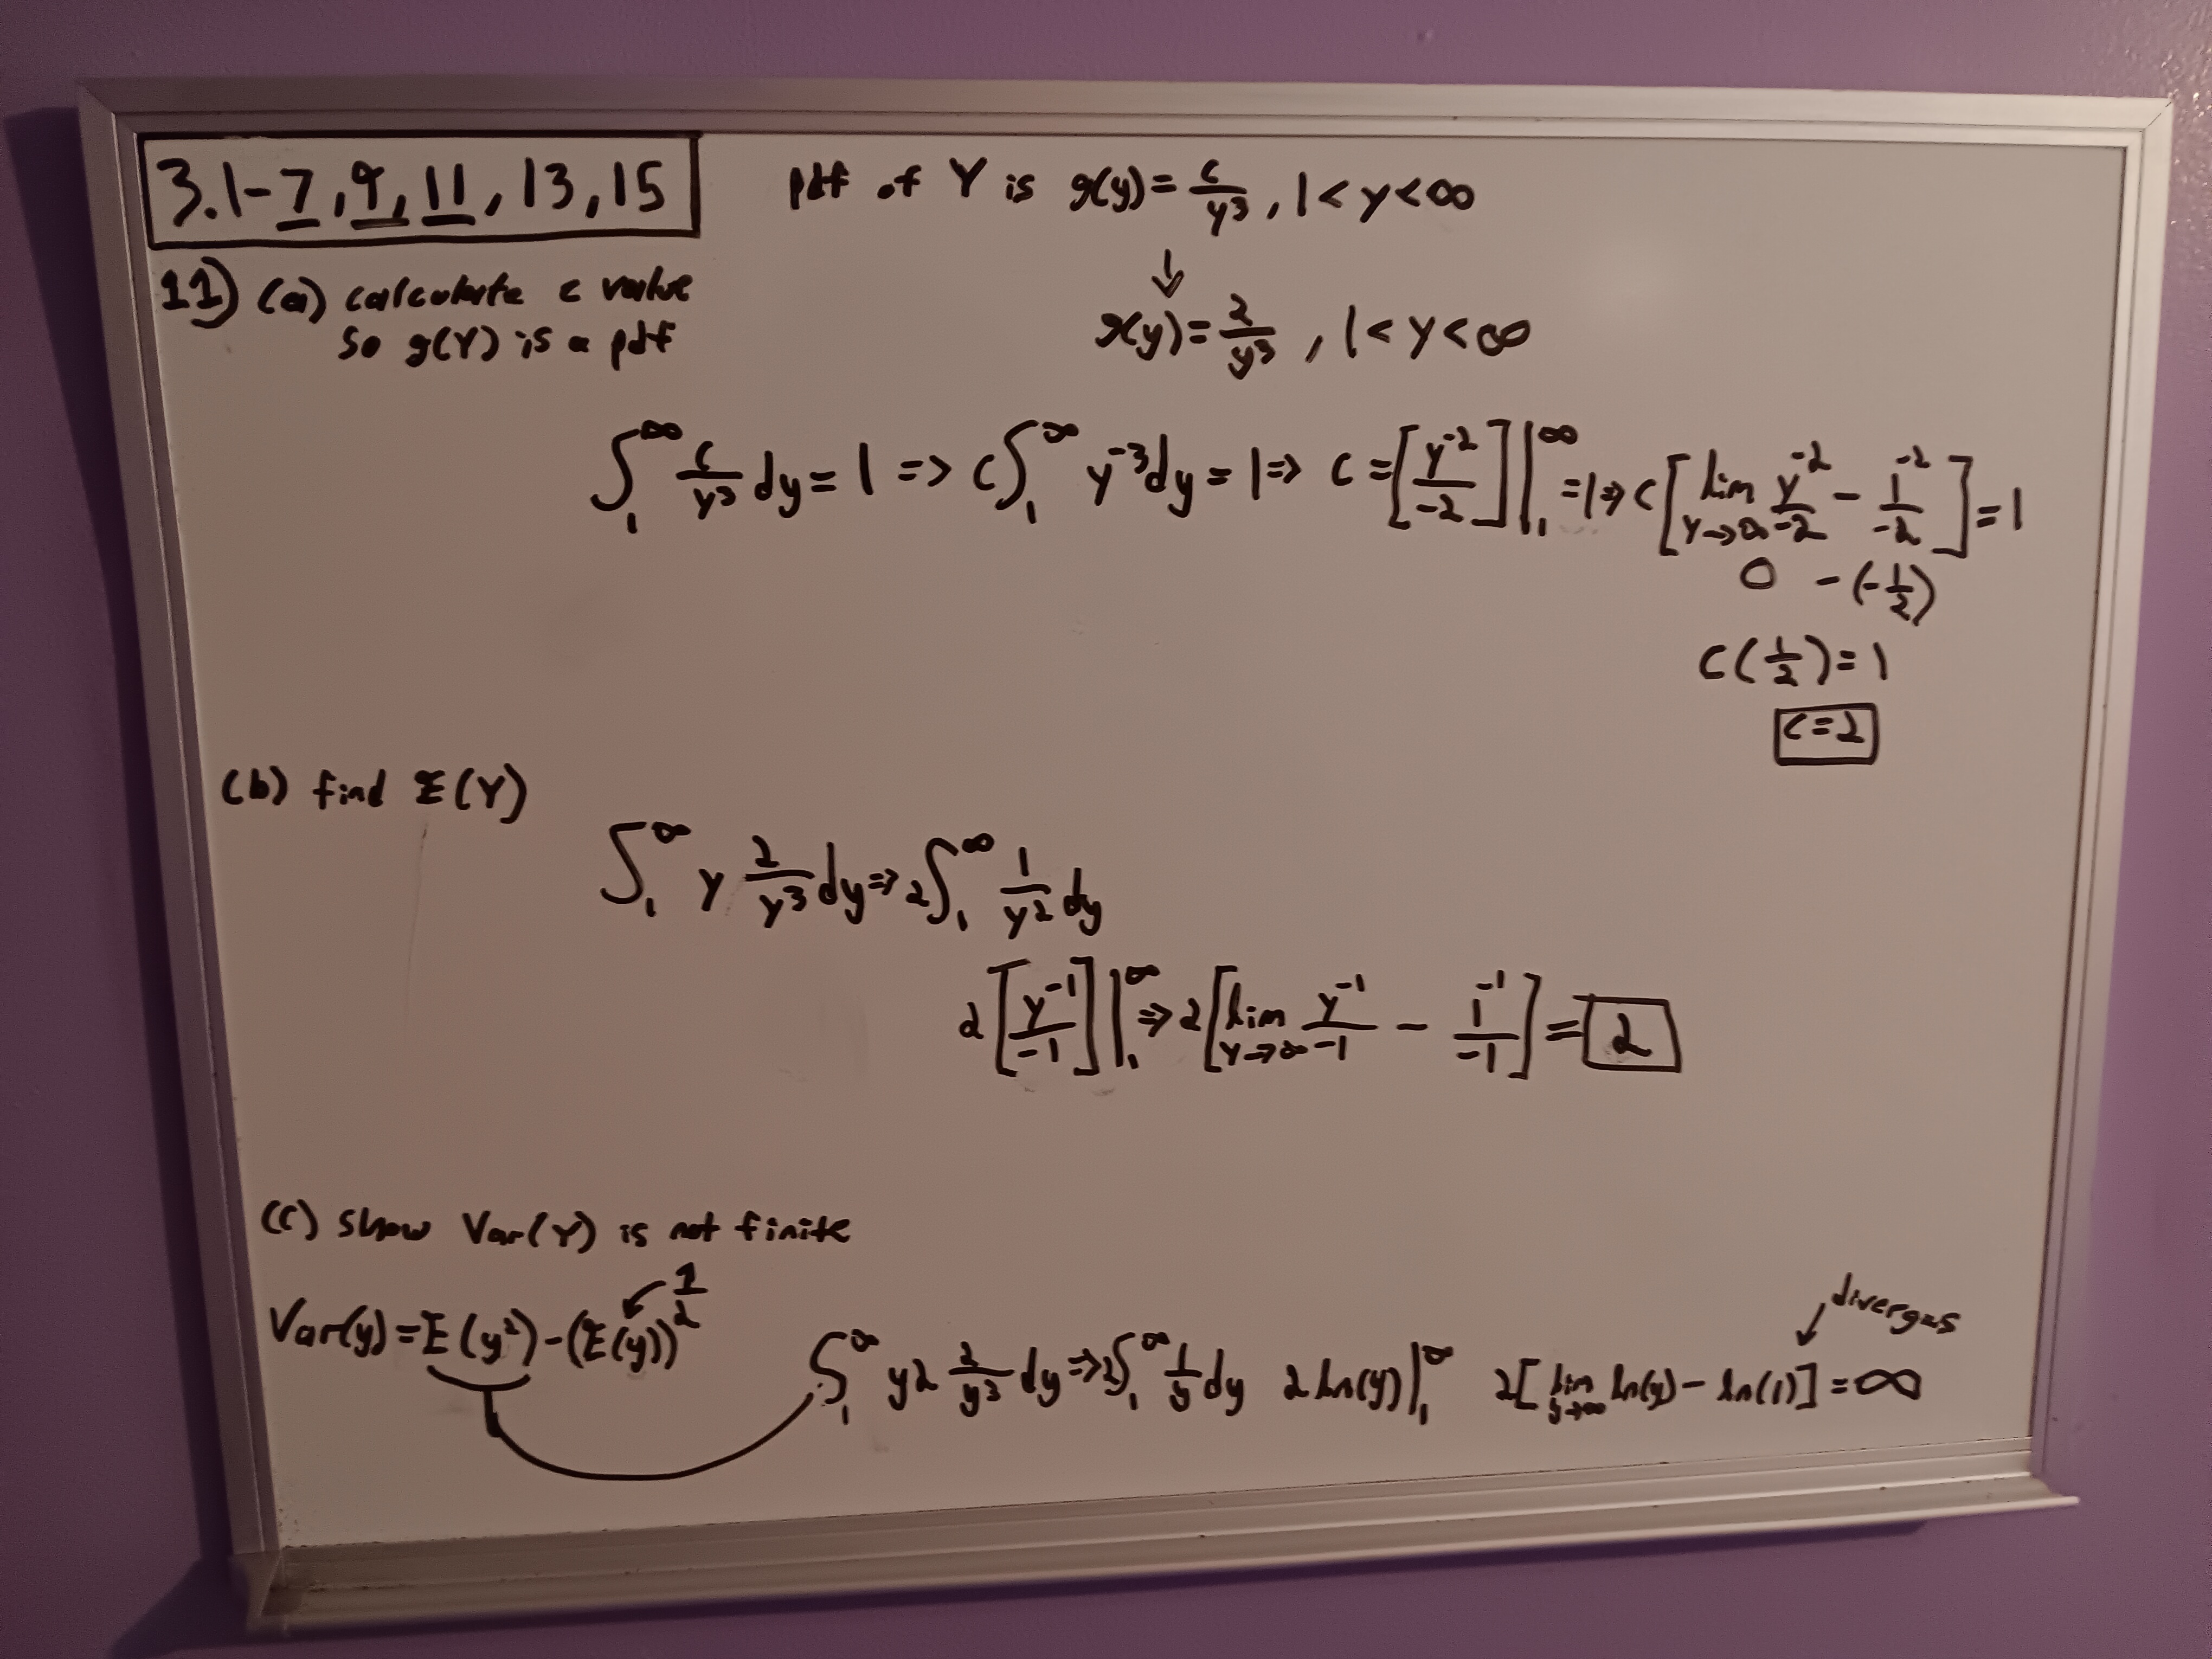 3.1-7,9,11,13,15
pdf of Y is g(y)= c/y³, 1<y<∞
↓
g(y)= 2/y³, 1<y<∞
11) (a) calculate c value
so g(Y) is a pdf
∫₁^∞ c/y³ dy=1 => c∫₁^∞ y⁻³dy=1=> c=[y⁻²/-2]|₁^∞ =1=> c[lim y→∞ y⁻²/-2 - 1⁻²/-2]=1
0 -(-1/2)
c(1/2)=1
c=2
(b) find E(Y)
∫₁^∞ y 2/y³ dy=> 2∫₁^∞ 1/y² dy
2[y⁻¹/-1]|₁^∞ => 2[lim y→∞ y⁻¹/-1 - 1⁻¹/-1]=2
(c) show Var(Y) is not finite
Var(y)=E(y²)-(E(y))²
∫₁^∞ y2 2/y³ dy=>2∫₁^∞ 1/y dy 2ln(y)|₁^∞ 2[lim y→∞ ln(y)-ln(1)]=∞
diverges